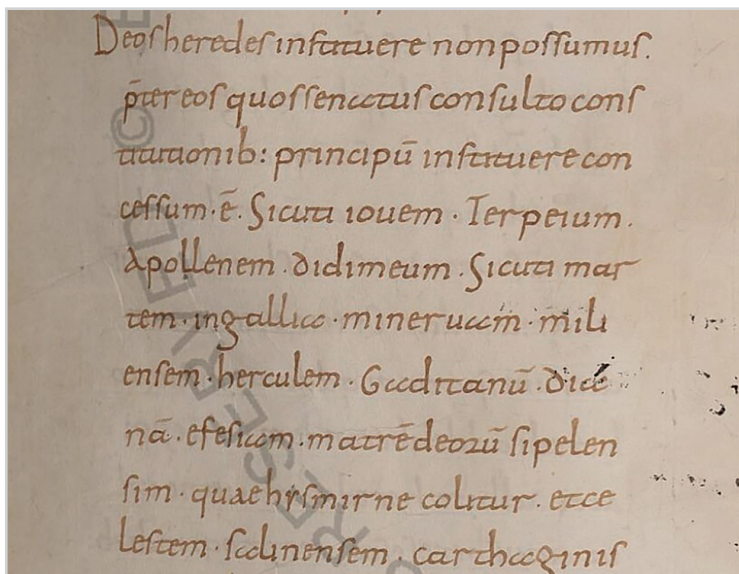 Deos heredes instituere non possumus.
p̄ter eos quos senatus consulto cons
titutionib: principū instituere con
cessum · ē. Sicuti iouem · Terpeium.
Apollenem · didimeum . Sicuti mar
tem · ingallia · mineruam · mili
ensem · herculem · Gaditanū · dia
nā · efesiam · matrē deorū sipelen
sim · quae hysmirne colitur . et ce
lestem · salinensem . carthaginis